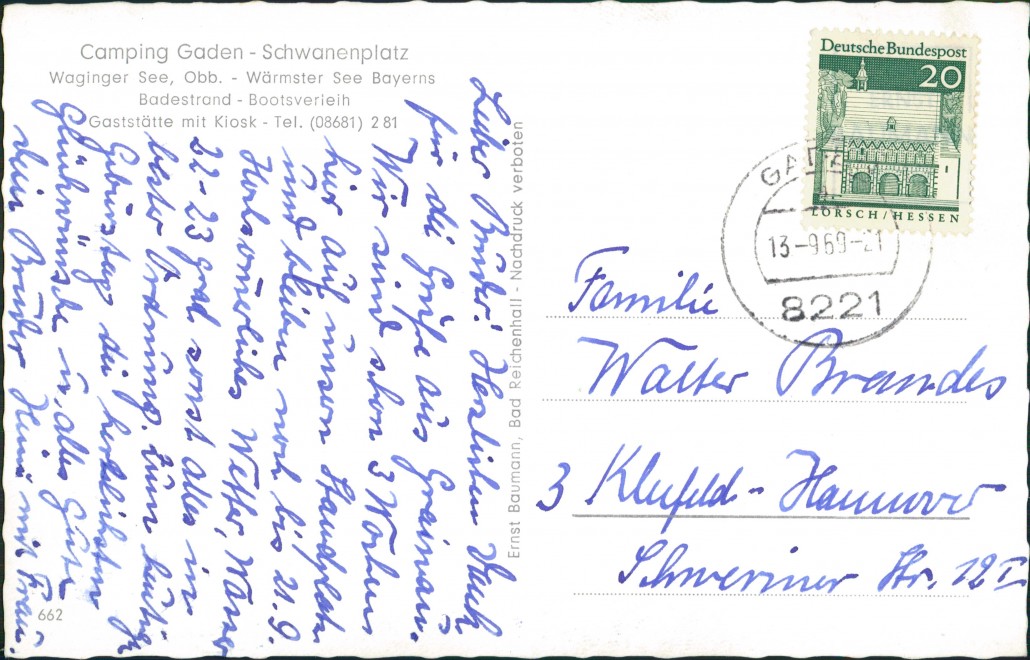 Camping Gaden - Schwanenplatz
Waginger See, Obb. - Wärmster See Bayerns
Badestrand - Bootsverleih
Gaststätte mit Kiosk - Tel. (08681) 2 81
Lieber Bruder! Herzlichen Dank
für die Grüße aus Grainau.
Wir sind schon 3 Wochen
hier auf unserem Standplatz
und bleiben noch bis 21.9.
Herbstliches Wetter, Wasser
22-23 grad sonst alles in
bester Ordnung. Zum heutig
Geburtstag die herzlichsten
Glückwünsche u. alles Gute
Dein Bruder Heini mit Frau.
662
Ernst Baumann, Bad Reichenhall - Nachdruck verboten
Deutsche Bundespost
20
LORSCH/HESSEN
13-9.69-21
8221
Familie
Walter Brandes
3 Kleefeld-Hannover
Schweriner Str. 12 I